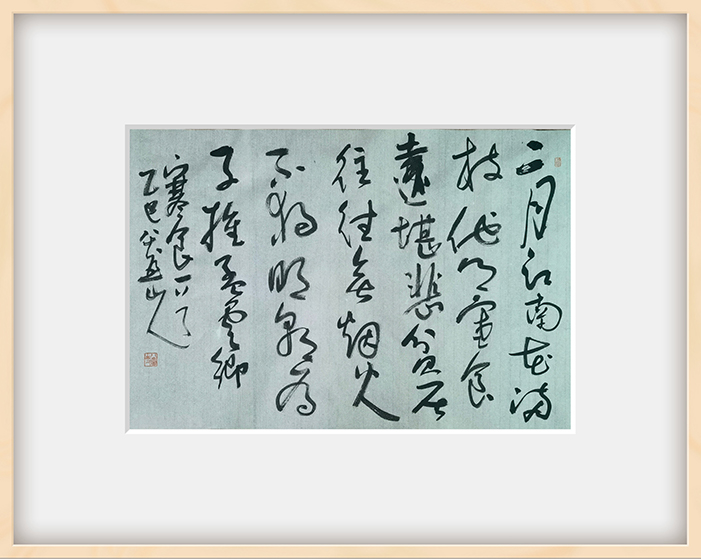 二月江南花满
枝他乡寒食
遠堪悲贫居
往往无烟火
不独明朝为
子推孟雲卿
寒食一首
乙巳山人